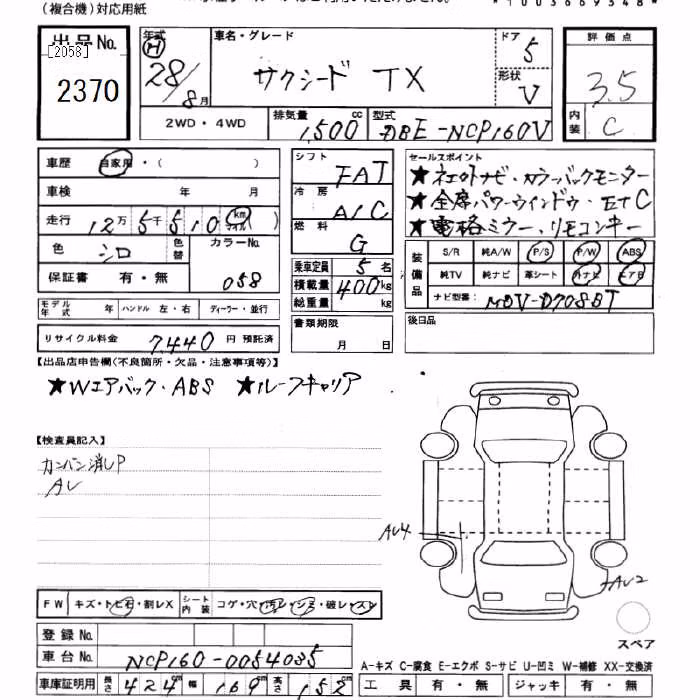 (複合機)対応用紙
*1003669348*
出品No.
[2058]
2370
年式 H 28/8月
車名・グレード
サクシード TX
ドア 5
形状 V
評価点
3.5
内装 C
2WD・4WD
排気量 1,500 cc
型式 DBE-NCP160V
車歴 自家用・( )
車検 年 月
走行 12万5千510 km マイル ( )
色 シロ
色替
カラーNo. 058
保証書 有・無
モデル年式 年 ハンドル 左・右 ディーラー・並行
リサイクル料金 7,440 円 預託済
シフト FAT
冷房 A/C
燃料 G
乗車定員 5名
積載量 400kg
総重量 kg
書類期限
月 日
セールスポイント
★社外ナビ・カラーバックモニター
★全席パワーウインドウ・ETC
★電格ミラー、リモコンキー
装備品
S/R 純A/W P/S P/W ABS
純TV 純ナビ 革シート 外ナビ エアB
ナビ型番: MDV-D708BT
後日品
【出品店申告欄(不良箇所・欠品・注意事項等)】
★Wエアバック・ABS ★ルーフキャリア
【検査員記入】
カンバン消しP
AU
AU4
AU2
スペア
FW キズ・トビ石・割レX シート内装 コゲ・穴・汚レ・シミ・破レ・スレ
登録No.
車台No. NCP160-0054035
車庫証明用 長さ 424cm 幅 169cm 高さ 152cm
A-キズ C-腐食 E-エクボ S-サビ U-凹ミ W-補修 XX-交換済
工具 有・無 ジャッキ 有・無